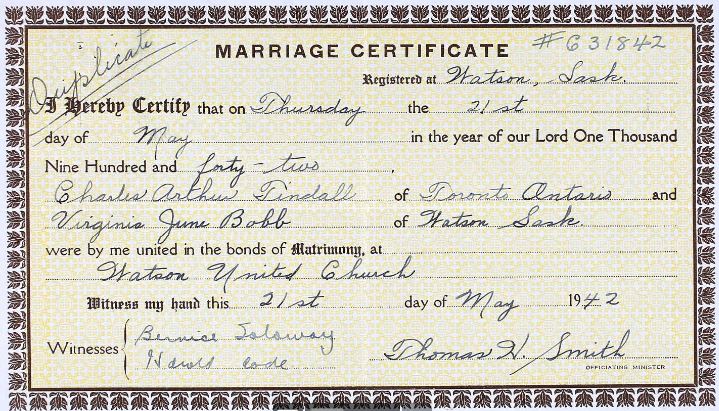 Duplicate
MARRIAGE CERTIFICATE #631842
Registered at Watson, Sask.
I Hereby Certify that on Thursday the 21st
day of May in the year of our Lord One Thousand
Nine Hundred and forty-two,
Charles Arthur Tindall of Toronto Ontario and
Virginia June Bobb of Watson Sask.
were by me united in the bonds of Matrimony, at
Watson United Church
Witness my hand this 21st day of May 1942
Witnesses Bernice Soloway
Harold Code
Thomas H. Smith
OFFICIATING MINISTER